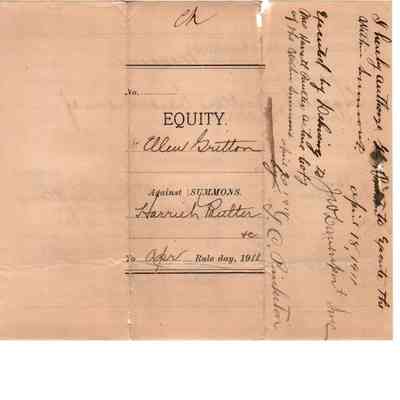 No.
EQUITY.
Ellen Gretton
Against } SUMMONS.
Harriet Butler
&c
To Apr Rule day, 1911
I hereby authorize to Execute the
Within Summons
April 18, 1911
Executed by Delivering to
Mrs Harriett Butler a true Copy
of the Within Summons April 20 1911